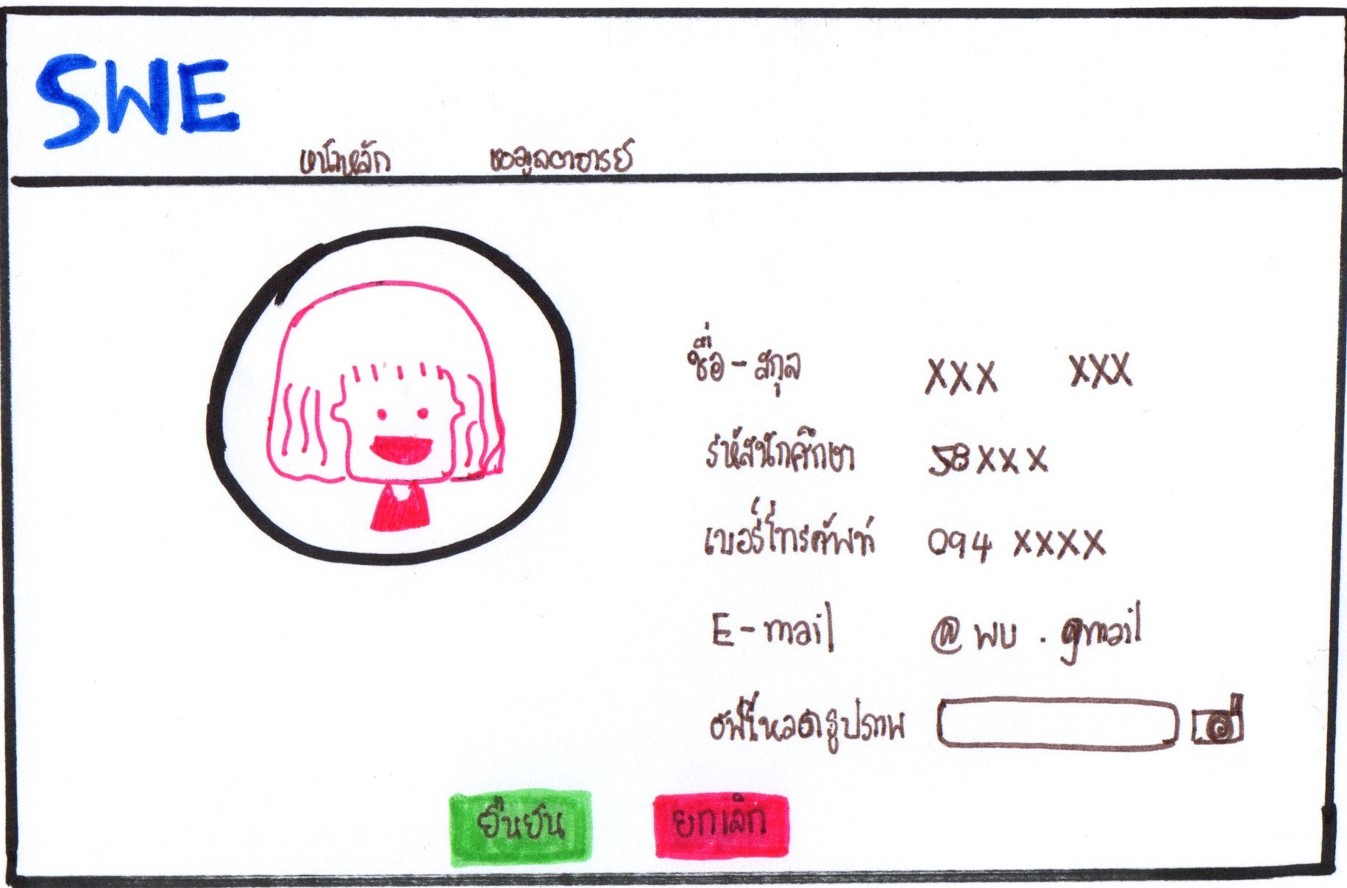 SWE
หน้าหลัก ขอมูลอาจารย์
ชื่อ-สกุล XXX XXX
รหัสนักศึกษา 58XXX
เบอร์โทรศัพท์ 094 XXXX
E-mail @wu.gmail
อัพโหลดรูปภาพ
ยืนยัน ยกเลิก